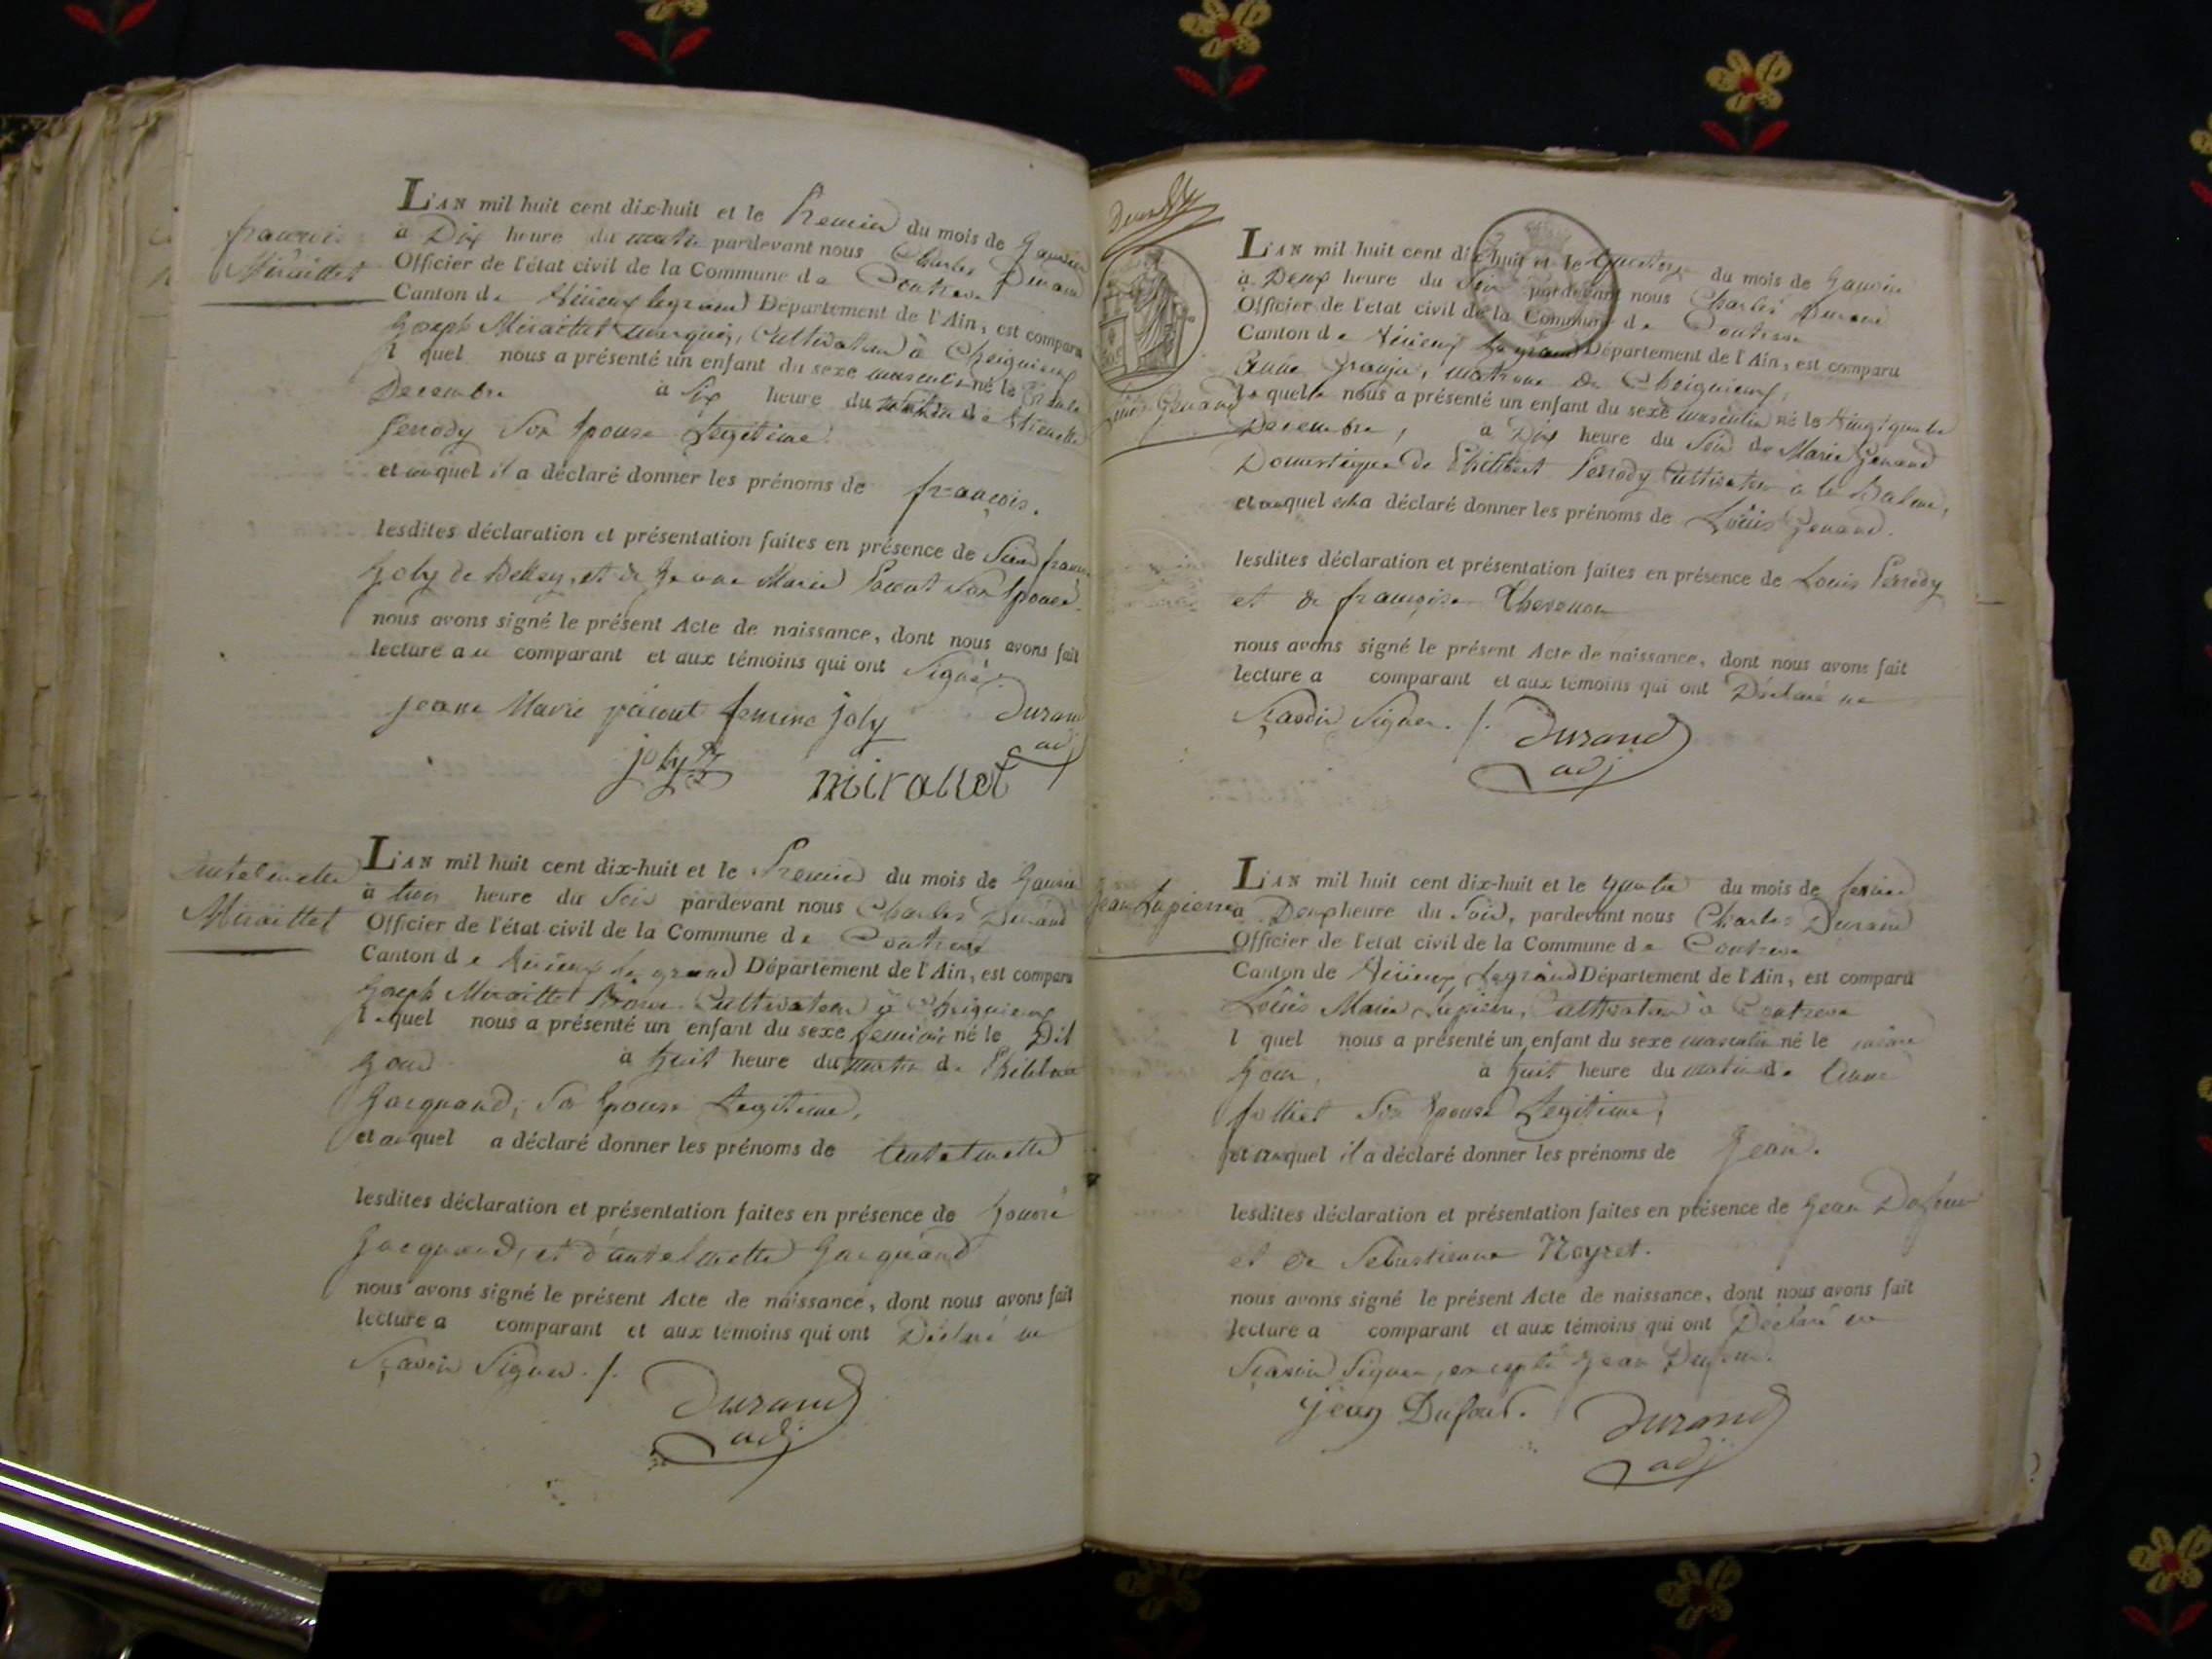 françois
Miraillet
L'AN mil huit cent dix-huit et le Premier du mois de Janvier
à Dix heure du matin pardevant nous Charles Durand
Officier de l'état civil de la Commune de Contrevoz
Canton de Virieux legrand Département de l'Ain, est comparu
Joseph Miraillet marquis, Cultivateur à Cheignieux
l quel nous a présenté un enfant du sexe masculin né le trente
Decembre à Six heure du matin de Etiennette
Perrody Son Epouse Legitime.
et auquel il a déclaré donner les prénoms de françois.
lesdites déclaration et présentation faites en présence de Sieur françois
Joly de Belley, et de Jeanne Marie Parent Son Epouse.
nous avons signé le présent Acte de naissance, dont nous avons fait
lecture au comparant et aux témoins qui ont Signé.
jeane Marie parent femme joly Durand
joly adj
mirallet
antelmette
Miraillet
L'AN mil huit cent dix-huit et le Premier du mois de Janvier
à trois heure du Soir pardevant nous Charles Durand
Officier de l'état civil de la Commune de Contrevoz
Canton de Virieux le grand Département de l'Ain, est comparu
Joseph Miraillet Cultivateur à Cheignieux
lequel nous a présenté un enfant du sexe feminin né le Dit
Jour à huit heure du matin de Philiberte
Jacquand, Son Epouse Legitime,
et auquel a déclaré donner les prénoms de Antelmette
lesdites déclaration et présentation faites en présence de honoré
Jacquand, et d'antelmette Jacquand
nous avons signé le présent Acte de naissance, dont nous avons fait
lecture a comparant et aux témoins qui ont Déclaré ne
Sçavoir Signer ./.
Durand
adj
Louis Genand
L'AN mil huit cent dix-huit et le Quatorze du mois de Janvier
à Deux heure du Soir pardevant nous Charles Durand
Officier de l'état civil de la Commune de Contrevoz
Canton de Virieux Le grand Département de l'Ain, est comparu
Anne matrone de Cheignieux,
laquelle nous a présenté un enfant du sexe masculin né le Vingt quatre
Decembre, à Dix heure du Soir de Marie Genand
Domestique de Philibert Perrody Cultivateur à la Balme,
et auquel elle a déclaré donner les prénoms de Louis Genand.
lesdites déclaration et présentation faites en présence de Louis Perrody
et de françoise Thevenon
nous avons signé le présent Acte de naissance, dont nous avons fait
lecture a comparant et aux témoins qui ont Déclaré ne
Sçavoir Signer. /.
Durand
adj
Jean Lapierre
L'AN mil huit cent dix-huit et le quatre du mois de fevrier
à Deux heure du Soir, pardevant nous Charles Durand
Officier de l'état civil de la Commune de Contrevoz
Canton de Virieux Legrand Département de l'Ain, est comparu
Louis Marie Lapierre, Cultivateur à Contrevoz
l quel nous a présenté un enfant du sexe masculin né le même
Jour, à huit heure du matin de Anne
folliet Son Epouse Legitime,
et auquel il a déclaré donner les prénoms de Jean.
lesdites déclaration et présentation faites en présence de Jean Dufour
et de Sebastienne Neyret.
nous avons signé le présent Acte de naissance, dont nous avons fait
lecture a comparant et aux témoins qui ont Déclaré ne
Sçavoir Signer, excepté Jean Dufour.
jean Dufour. Durand
adj